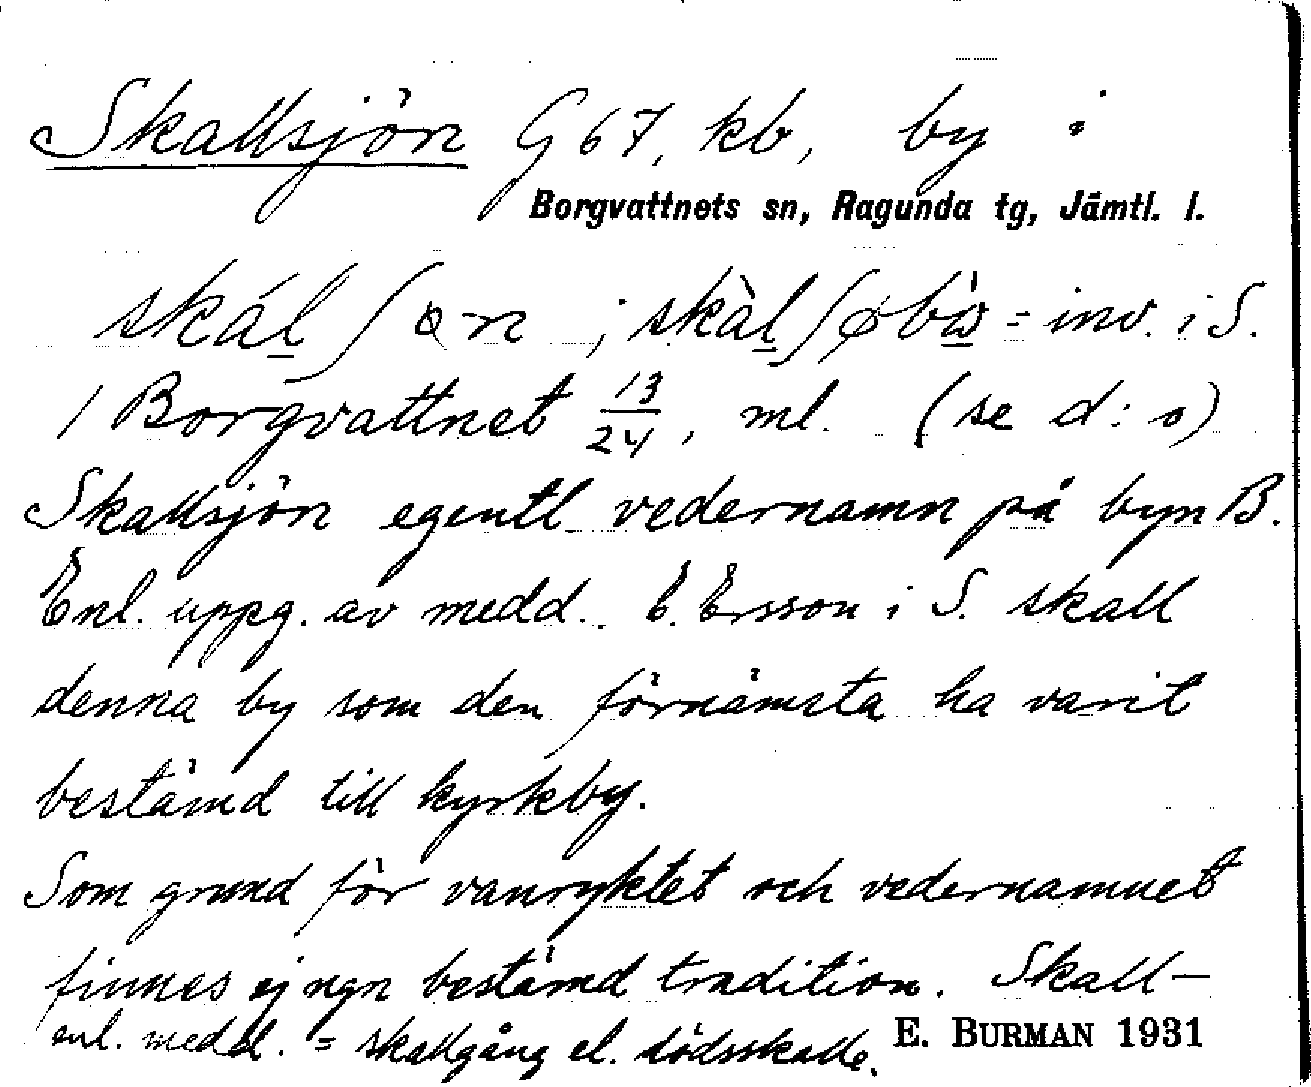 Skallsjön G 67, kb, by i
Borgvattnets sn, Ragunda tg, Jämtl. l.
skál̲ʃøn ; skàl̲ʃøbi̇s = inv. i S.
/ Borgvattnet 13/24, ml. (se d:o)
Skallsjön egentl vedernamn på byn B.
Enl. uppg. av medd. E. Ersson i S. skall
denna by som den förnämsta ha varit
bestämd till kyrkby.
Som grund för vanryktet och vedernamnet
finnes ej ngn bestämd tradition. Skall-
enl. medd. = skallgång el. dödsskalle.
E. BURMAN 1931